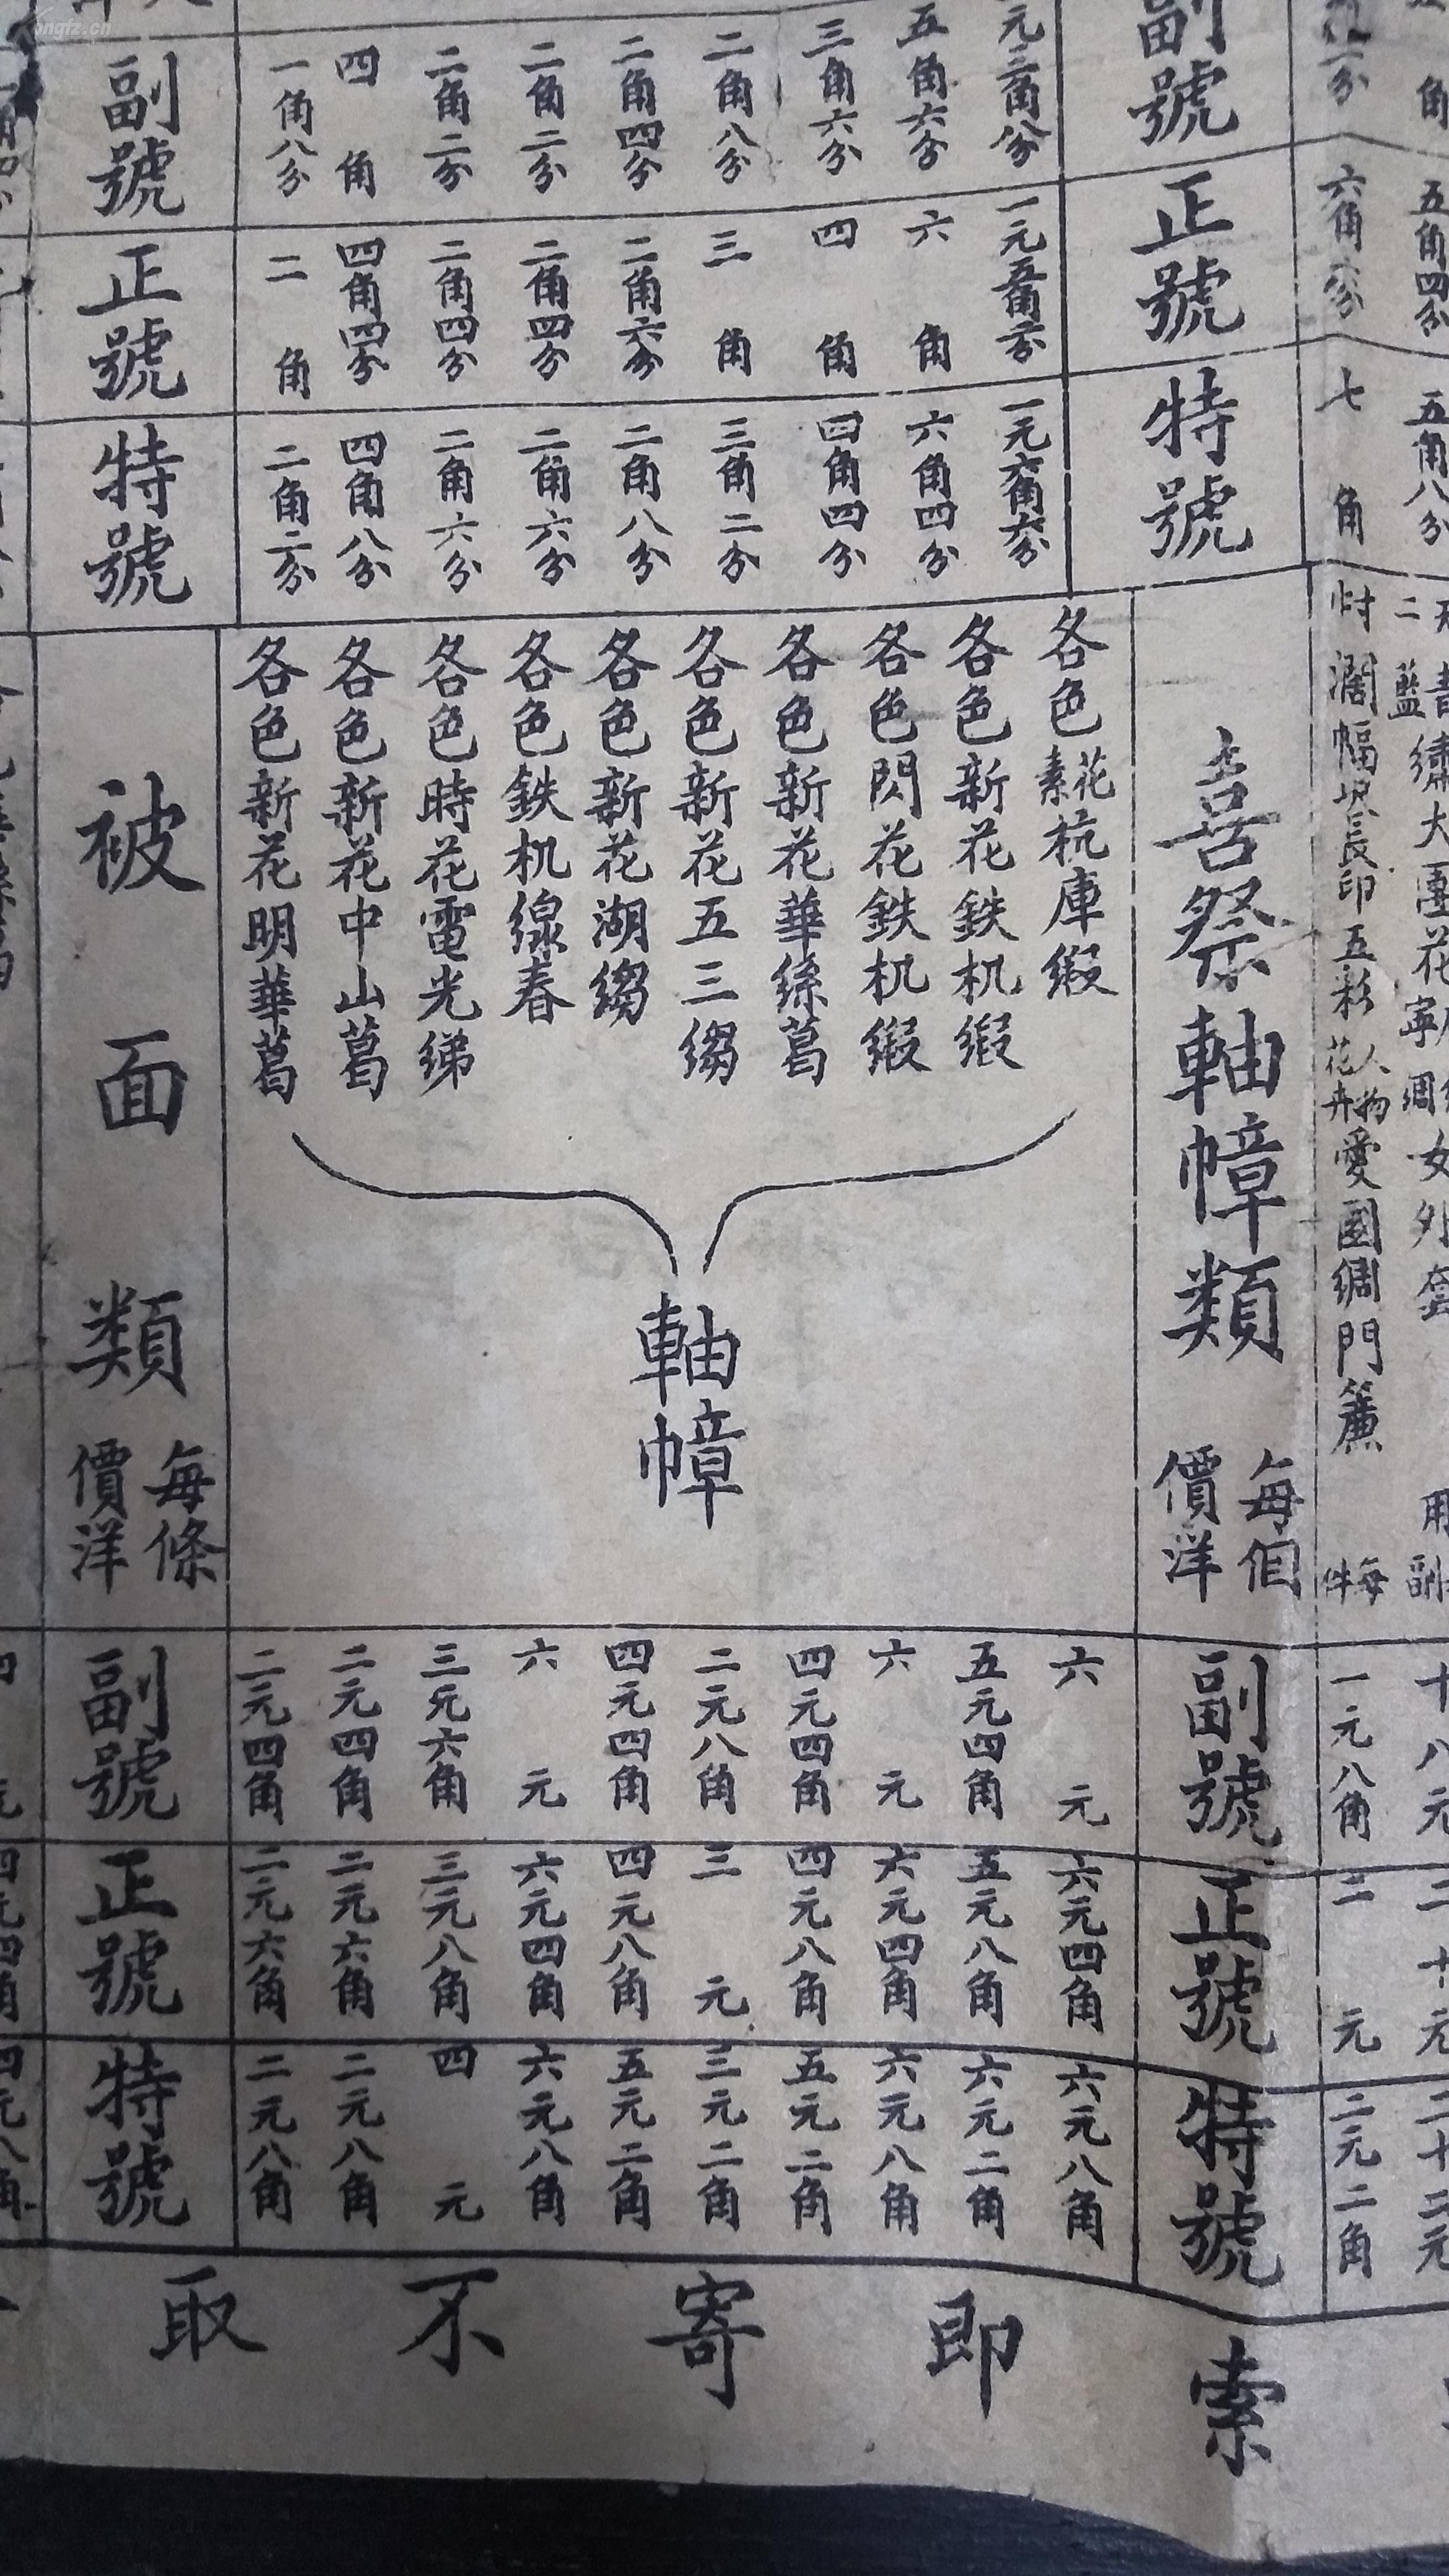 五角四分
五角八分
六角六分
七角
副號
正號
特號
五角六分
六角
六角四分
三角六分
四角
四角四分
二角八分
三角
三角二分
二角四分
二角六分
二角八分
二角二分
二角四分
二角六分
二角二分
二角四分
二角六分
四角
四角四分
四角八分
一角八分
二角
二角二分
副號
正號
特號
繡大團花
女外套
十八元
二十元
二十二元
五彩花卉人物愛國綢門簾 每件
一元八角
二元
二元二角
喜祭軸幛類 每個價洋
副號
正號
特號
各色花素杭庫緞
六元
六元四角
六元八角
各色新花鉄机緞
五元四角
五元八角
六元二角
各色閃花鉄机緞
六元
六元四角
六元八角
各色新花華絲葛
四元四角
四元八角
五元二角
各色新花五三縐
二元八角
三元
三元二角
各色新花湖縐
四元四角
四元八角
五元二角
各色鉄机線春
六元
六元四角
六元八角
各色時花電光綈
三元六角
三元八角
四元
各色新花中山葛
二元四角
二元六角
二元八角
各色新花明華葛
二元四角
二元六角
二元八角
軸幛
被面類 每條價洋
副號
正號
特號
四元四角
四元八角
索即寄不取
kongfz.cn